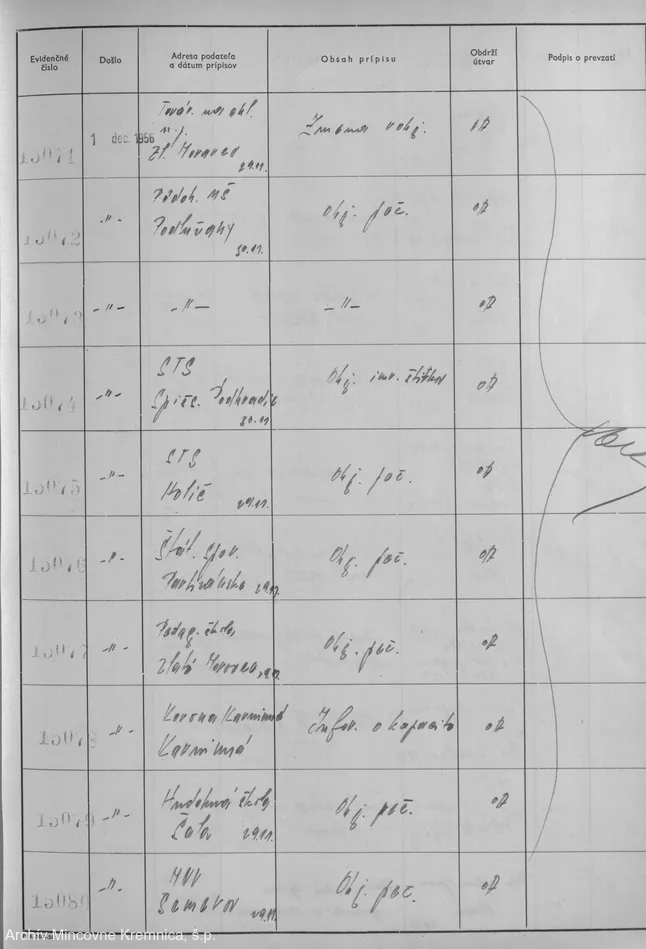 Evidenčné číslo
Došlo
Adresa podateľa a dátum prípisov
Obsah prípisu
Obdrží útvar
Podpis o prevzatí
15071
1 dec. 1956
Továr.
n.p.
Zl. Moravce
29.11.
Zmena obj.
15072
-"-
Pôdoh. MŠ
Podlužany
30.11.
Obj. peč.
15073
-"-
-"-
-"-
15074
-"-
STS
Spišs. Podhradie
30.11
Obj. inv. štítkov
15075
-"-
STS
Holíč
29.11.
Obj. peč.
15076
-"-
Štát. spor.
Partizánske 29.11.
Obj. peč.
15077
-"-
Pedag. škola
Zlaté Moravce 29.11
Obj. peč.
15078
-"-
Karviná
Infor. o kapacite
15079
-"-
Hudobná škola
Šaľa 29.11.
Obj. peč.
15080
-"-
MNV
29.11.
Obj. peč.
Archív Mincovne Kremnica, š.p.